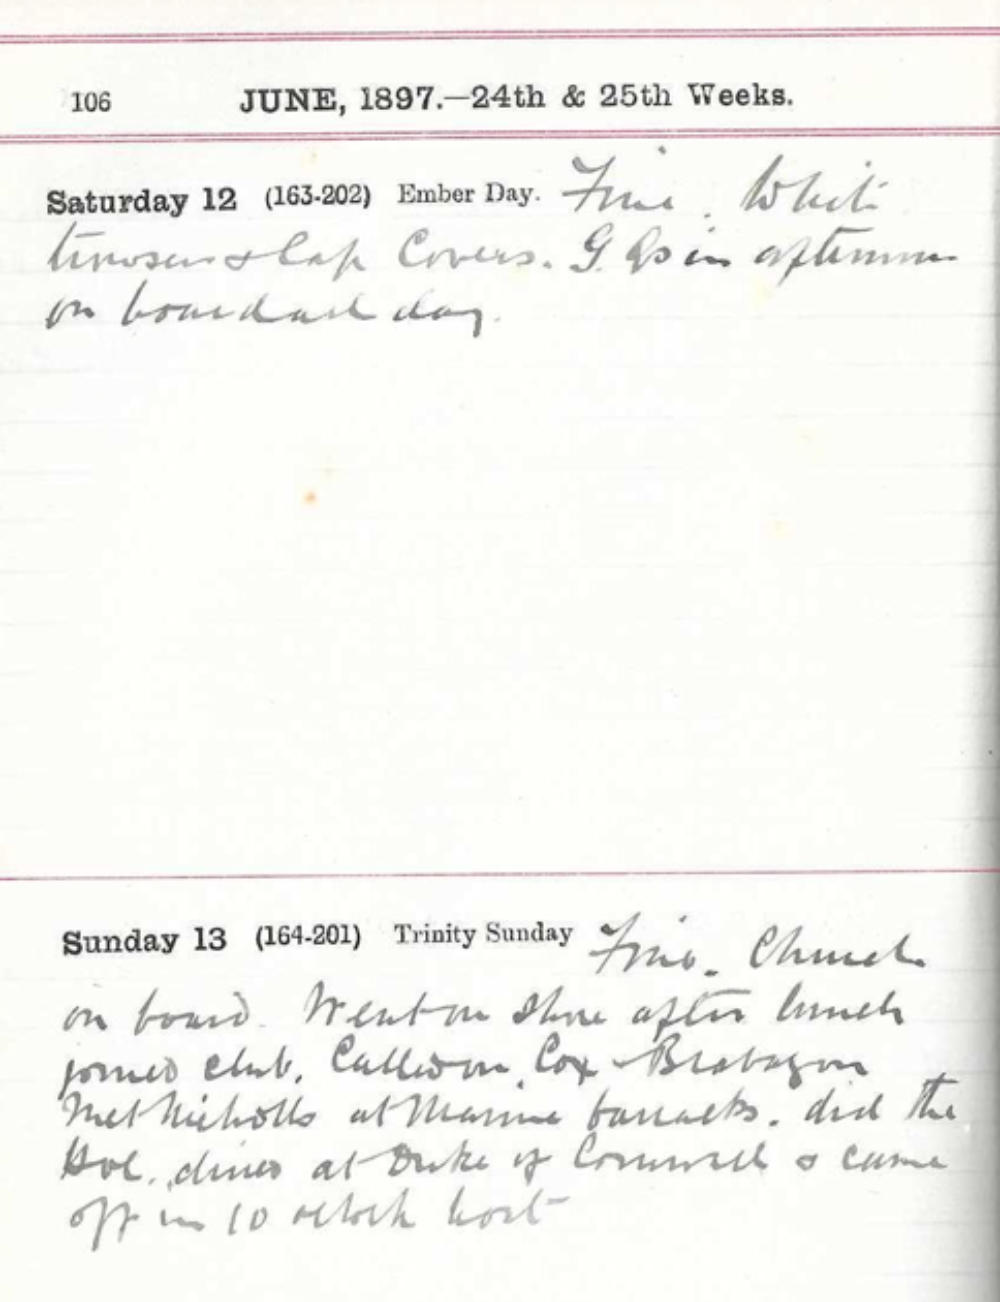 106 JUNE, 1897.—24th & 25th Weeks.
Saturday 12 (163-202) Ember Day. Fine. White
trousers & Cap Covers. G. Qs in afternoon
on board all day.
Sunday 13 (164-201) Trinity Sunday Fine. Church
on board. Went on shore after lunch
joined club. Called on Cox & Brabazon
Met Nicholls at Marine barracks. did the
Hoe. dined at Duke of Cornwall & came
off in 10 oclock boat